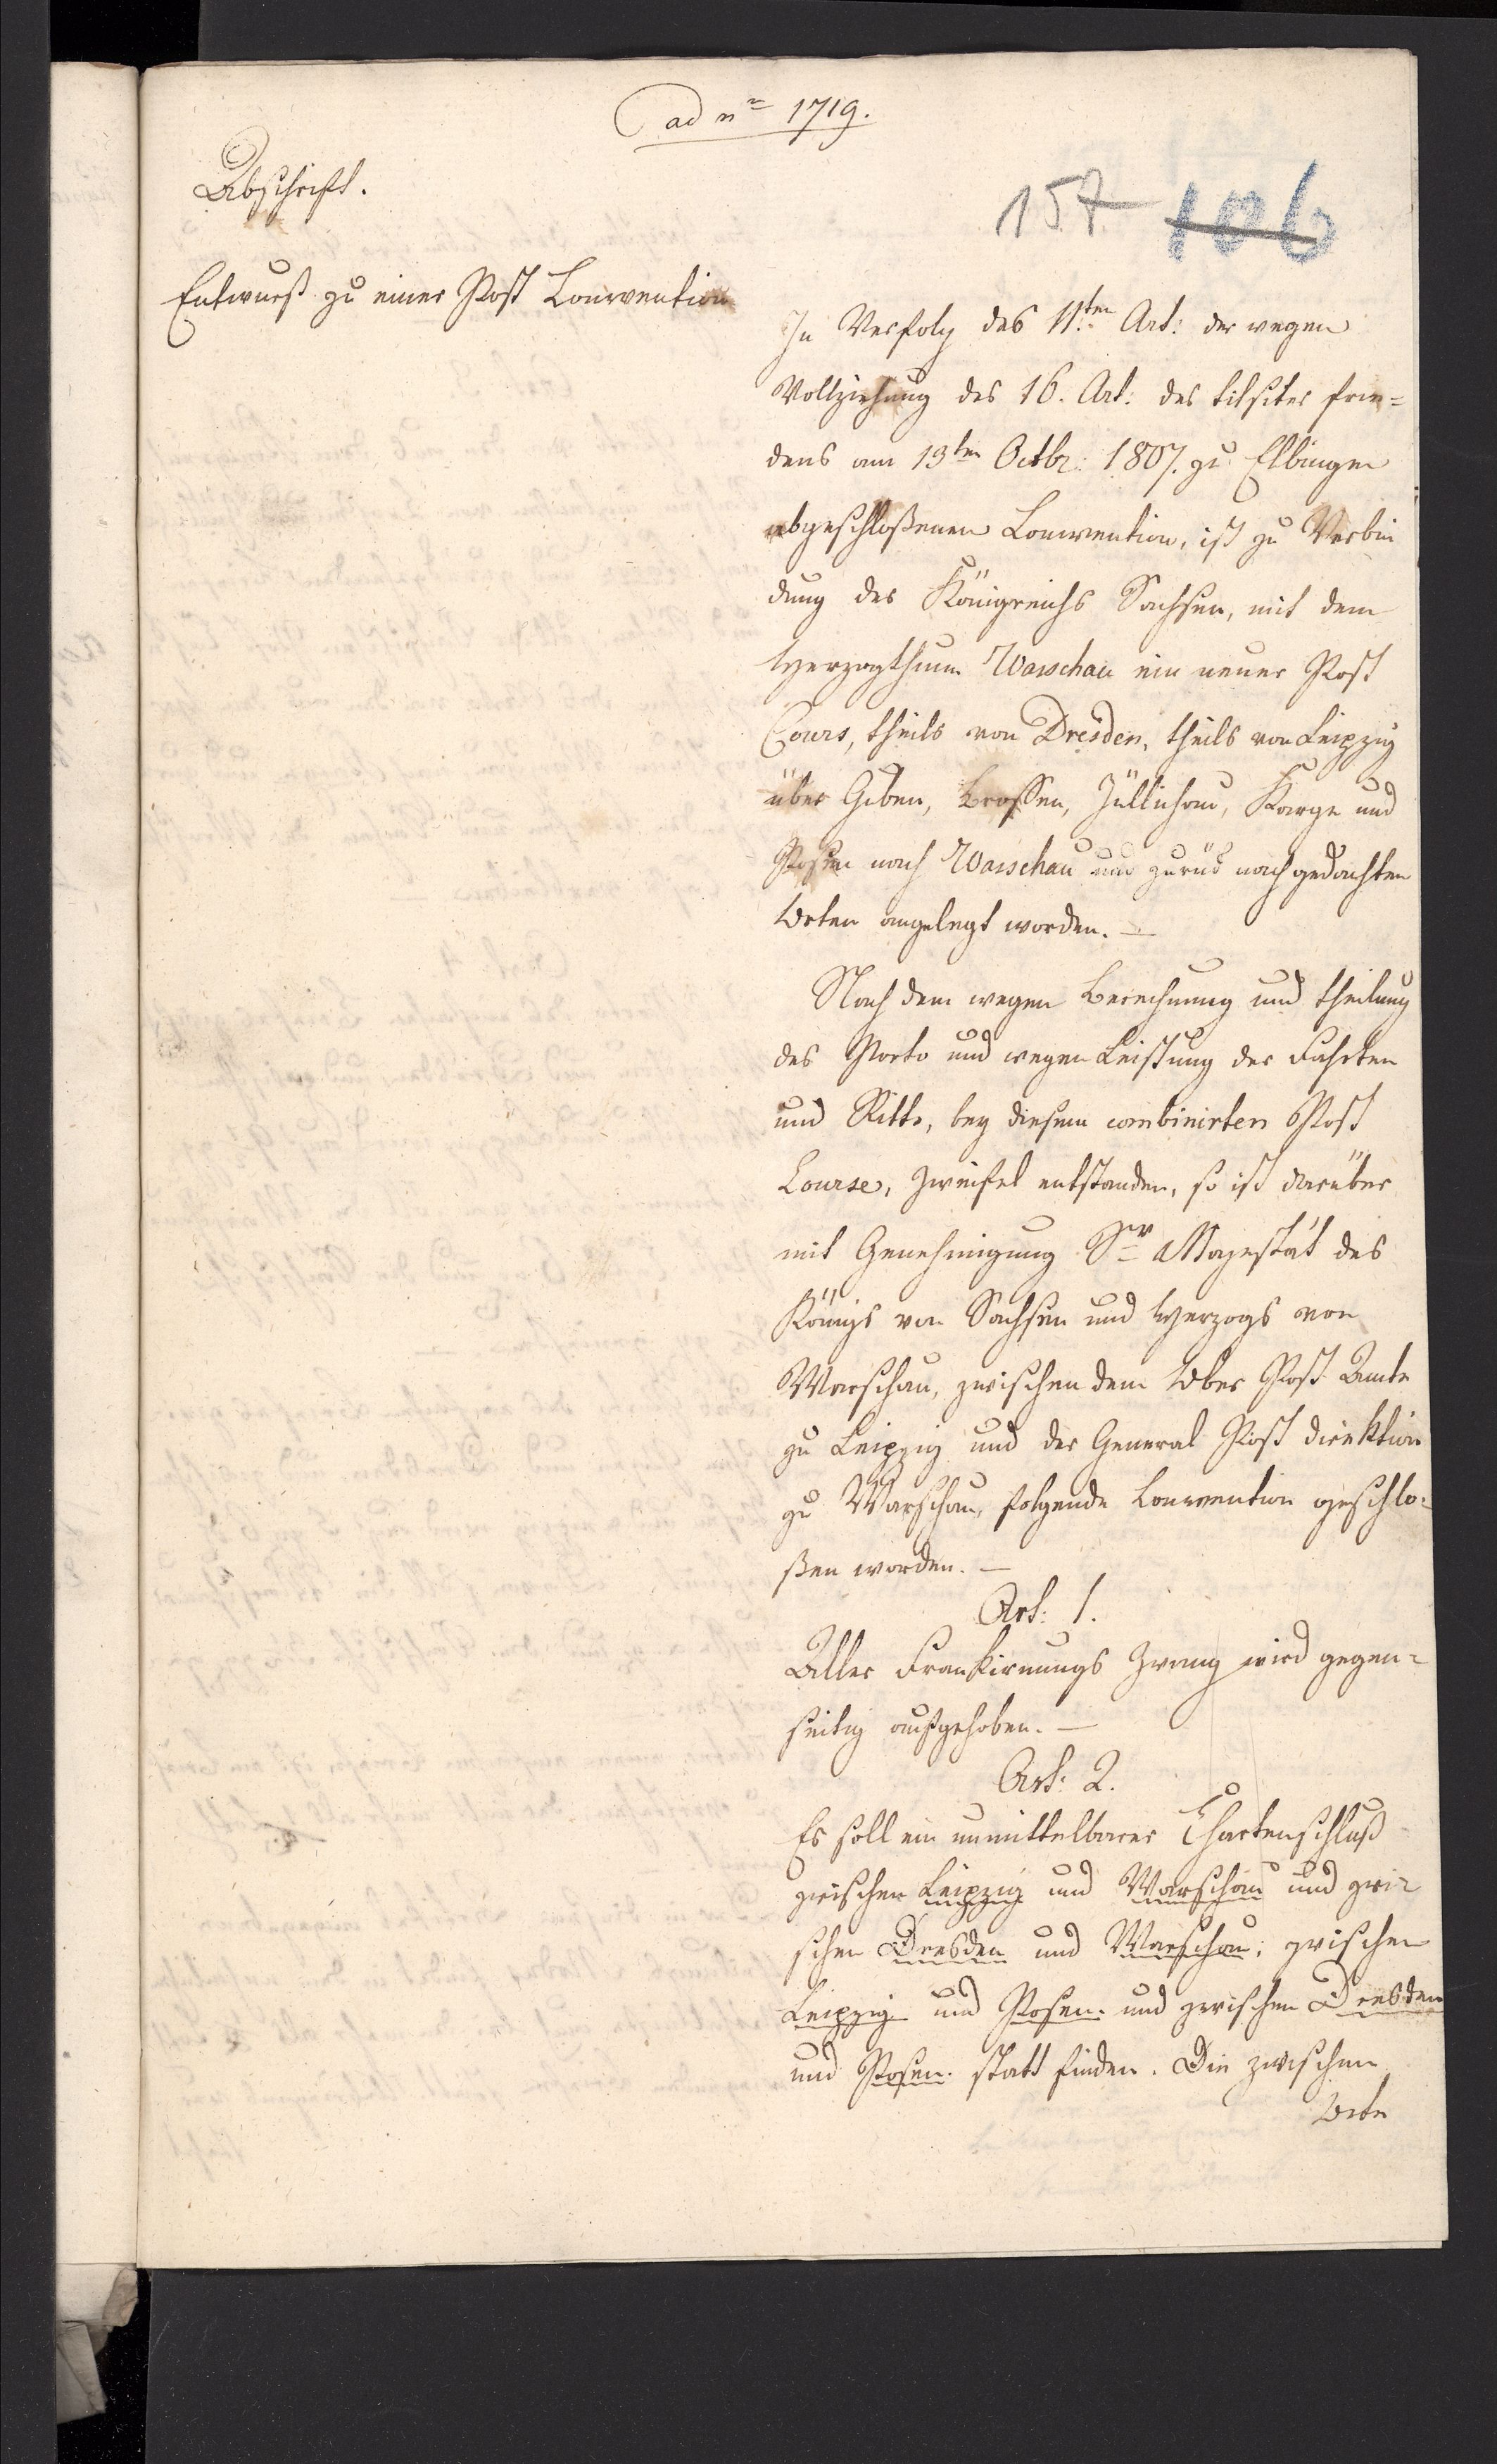 ad nro 1719.
Abschrift.
157 106
Entwurf zu einer Post Convention
In Verfolg des 11ten Art: der wegen
Vollziehung des 16. Art: des tilsiter frie=
dens am 13ten Octbr: 1807. zu Elbingen
abgeschloßenen Convention, ist zu Verbin
dung des Königreichs Sachsen, mit dem
Herzogthum Warschau ein neuer Post
Cours, theils von Dresden, theils von Leipzig
über Guben, Crossen, Züllichau, Karge und
Posen nach Warschau und zurück nach gedachten
Orten angelegt worden. —
Nach dem wegen Berechnung und theilung
des Porto und wegen Leistung der Fuhrten
und Ritts, bey diesem combinirten Post
Course, Zweifel entstanden, so ist darüber
mit Genehmigung Sr Majestät des
Königs von Sachsen und Herzogs von
Warschau, zwischen dem Ober Post Amte
zu Leipzig und der General Post direktion
zu Warschau, folgende Convention geschlo=
ßen worden. —
Art: 1.
Aller Frankirungs Zwang wird gegen=
seitig aufgehoben. —
Art: 2.
Es soll ein unmittelbarer Chartenschluß
zwischen Leipzig und Warschau und zwi=
schen Dresden und Warschau; zwischen
Leipzig und Posen. und zwischen Dresden
und Posen. statt finden. Die zwischen
Orte